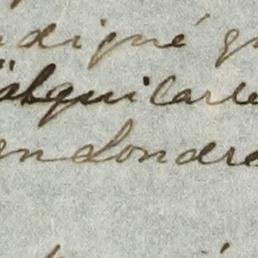 digné
alquilarle
en Londre